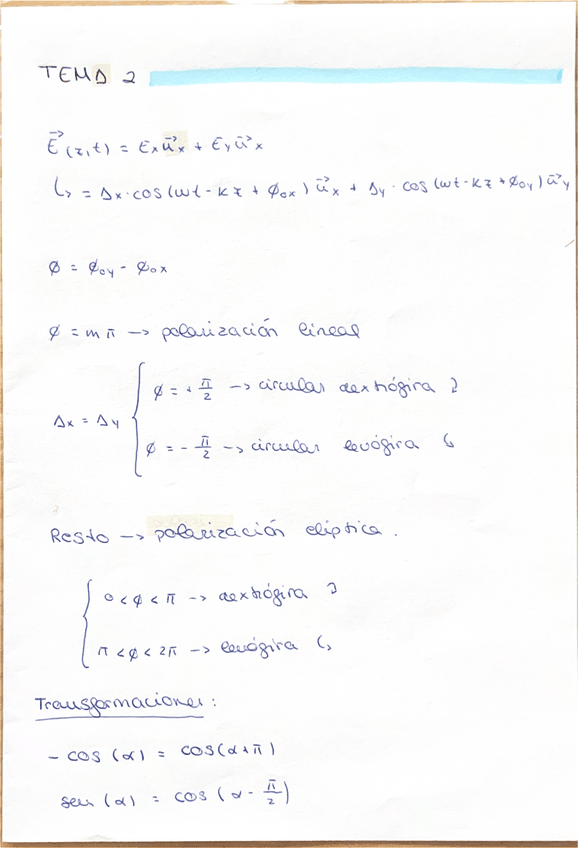 TEMA 2
E⃗(z,t) = Ex u⃗x + Ey u⃗x
↳ = Ax·cos(ωt-kz + ϕox) u⃗x + Ay·cos(ωt-kz+ϕoy) u⃗y
ϕ = ϕoy - ϕox
ϕ = mπ → polarización lineal
Ax = Ay { ϕ = +π/2 → circular dextrógira ⤸
ϕ = -π/2 → circular levógira ⤹
Resto → polarización elíptica.
{ 0 < ϕ < π → dextrógira ⤸
π < ϕ < 2π → levógira ⤹
Transformaciones:
- cos (α) = cos(α+π)
sen (α) = cos (α - π/2)